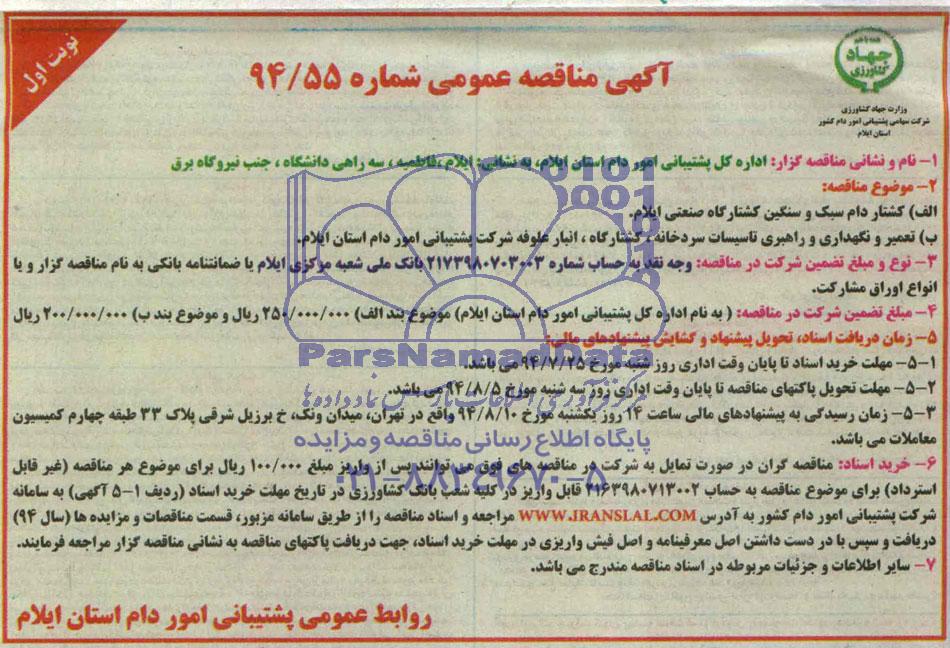 نوبت اول
همه با هم
جهاد
کشاورزی
وزارت جهاد کشاورزی
شرکت سهامی پشتیبانی امور دام کشور
استان ایلام
آگهی مناقصه عمومی شماره ۹۴/۵۵
۱- نام و نشانی مناقصه گزار: اداره کل پشتیبانی امور دام استان ایلام، به نشانی: ایلام ،فاطمیه ، سه راهی دانشگاه ، جنب نیروگاه برق
۲- موضوع مناقصه:
الف) کشتار دام سبک و سنگین کشتارگاه صنعتی ایلام.
ب) تعمیر و نگهداری و راهبری تاسیسات سردخانه ، کشتارگاه ، انبار علوفه شرکت پشتیبانی امور دام استان ایلام.
۳- نوع و مبلغ تضمین شرکت در مناقصه: وجه نقد به حساب شماره ۲۱۷۳۹۸۰۷۰۳۰۰۳ بانک ملی شعبه مرکزی ایلام یا ضمانتنامه بانکی به نام مناقصه گزار و یا
انواع اوراق مشارکت.
۴- مبلغ تضمین شرکت در مناقصه: ( به نام اداره کل پشتیبانی امور دام استان ایلام) موضوع بند الف) ۲۵۰/۰۰۰/۰۰۰ ریال و موضوع بند ب) ۲۰۰/۰۰۰/۰۰۰ ریال
۵- زمان دریافت اسناد، تحویل پیشنهاد و گشایش پیشنهادهای مالی:
۵-۱- مهلت خرید اسناد تا پایان وقت اداری روز شنبه مورخ ۹۴/۷/۲۵ می باشد.
۵-۲- مهلت تحویل پاکتهای مناقصه تا پایان وقت اداری روز سه شنبه مورخ ۹۴/۸/۵ می باشد.
۵-۳- زمان رسیدگی به پیشنهادهای مالی ساعت ۱۴ روز یکشنبه مورخ ۹۴/۸/۱۰ واقع در تهران، میدان ونک، خ برزیل شرقی پلاک ۳۳ طبقه چهارم کمیسیون
معاملات می باشد.
۶- خرید اسناد: مناقصه گران در صورت تمایل به شرکت در مناقصه های فوق می توانند پس از واریز مبلغ ۱۰۰/۰۰۰ ریال برای موضوع هر مناقصه (غیر قابل
استرداد) برای موضوع مناقصه به حساب ۲۱۶۳۹۸۰۷۱۳۰۰۲ قابل واریز در کلیه شعب بانک کشاورزی در تاریخ مهلت خرید اسناد (ردیف ۱-۵ آگهی) به سامانه
شرکت پشتیبانی امور دام کشور به آدرس WWW.IRANSLAL.COM مراجعه و اسناد مناقصه را از طریق سامانه مزبور، قسمت مناقصات و مزایده ها (سال ۹۴)
دریافت و سپس با در دست داشتن اصل معرفینامه و اصل فیش واریزی در مهلت خرید اسناد، جهت دریافت پاکتهای مناقصه به نشانی مناقصه گزار مراجعه فرمایند.
۷- سایر اطلاعات و جزئیات مربوطه در اسناد مناقصه مندرج می باشد.
روابط عمومی پشتیبانی امور دام استان ایلام
ParsNamadData
پایگاه اطلاع رسانی مناقصه و مزایده
۰۲۱-۸۸۳۴۹۶۷۰-۵